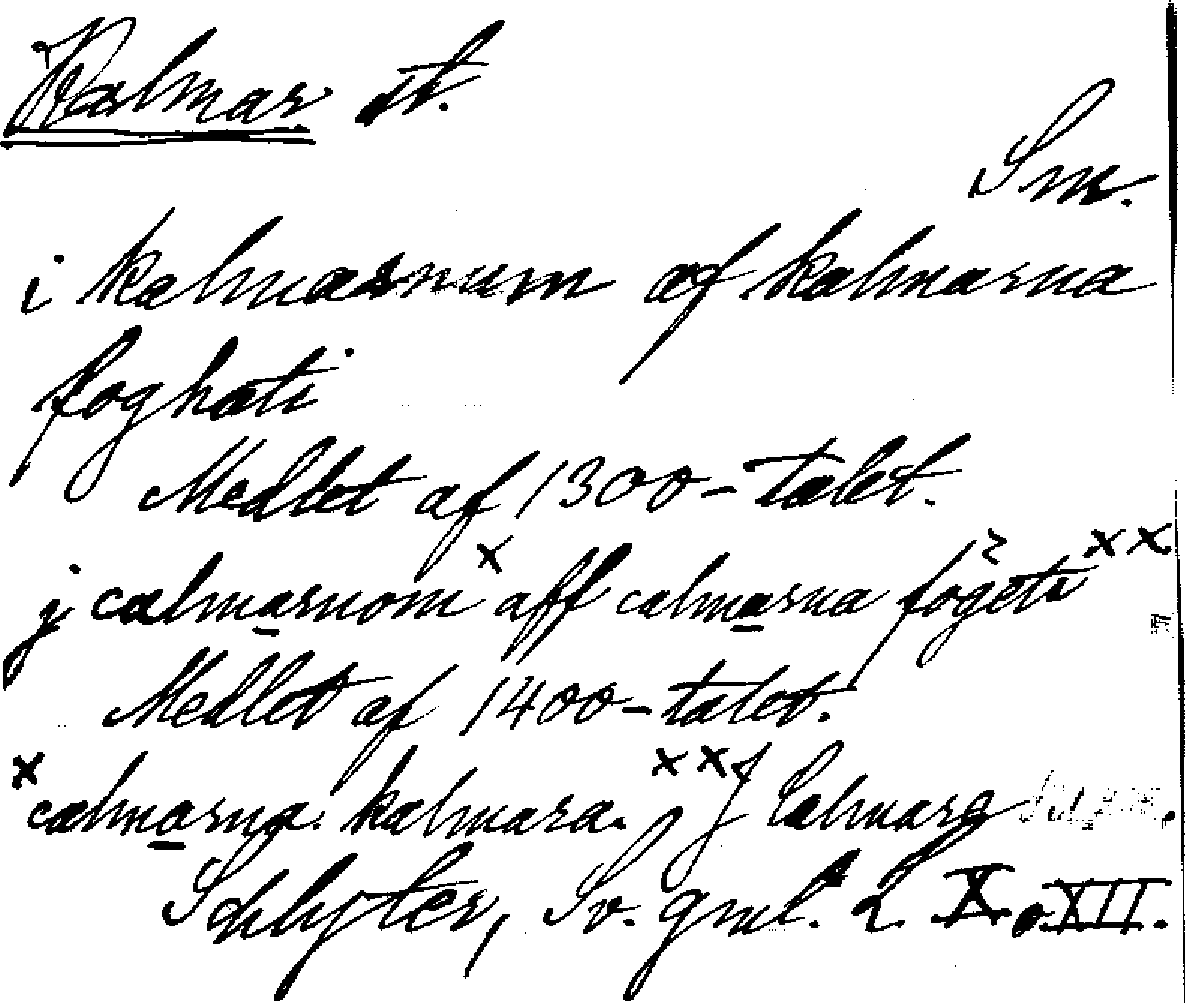 Kalmar st.
Sm.
i kalmarnum af kalmarna
foghati
Medlet af 1300-talet.
j calmarnom x aff calmarna fögeti xx
Medlet af 1400-talet.
x calmarna. kalmara. xx J Calmarn
Schlyter, Sv. gml. L. X o. XII.